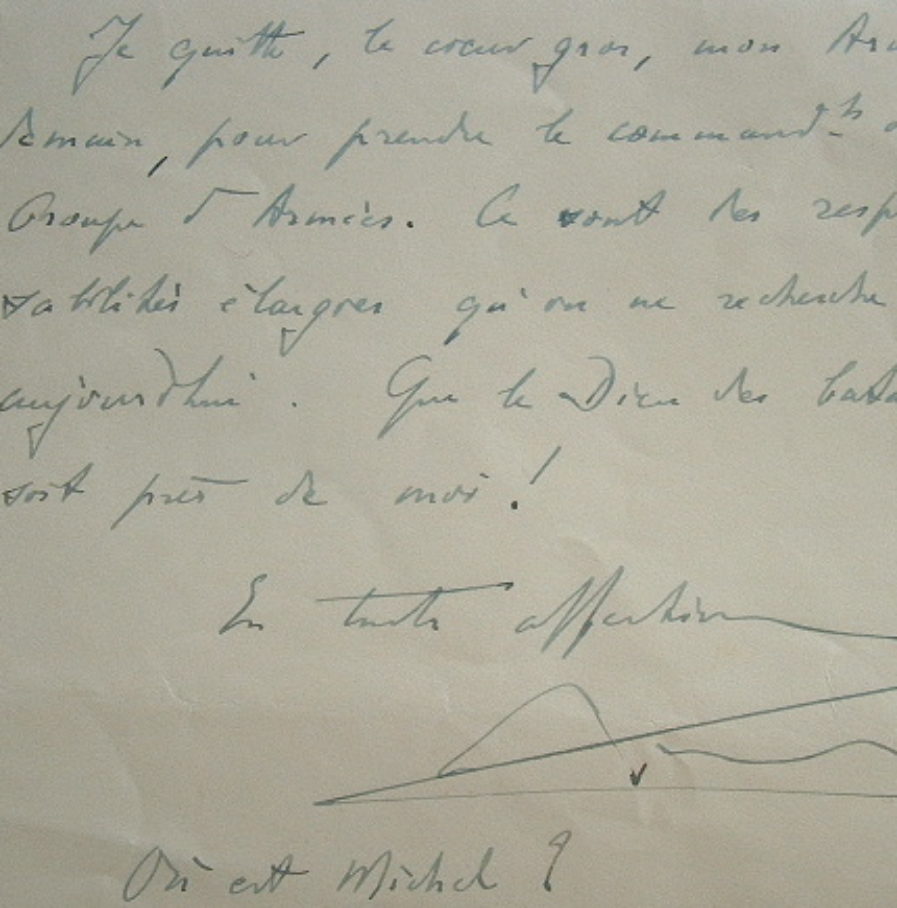 Je quitte, le coeur gros, mon Arm
demain, pour prendre le command.t d
Groupe d'Armées. Ce sont des resp
sabilités élargies qu'on ne recherche
aujourd'hui. Que le Dieu des bata
soit près de moi!
En toute affection
Où est Michel ?